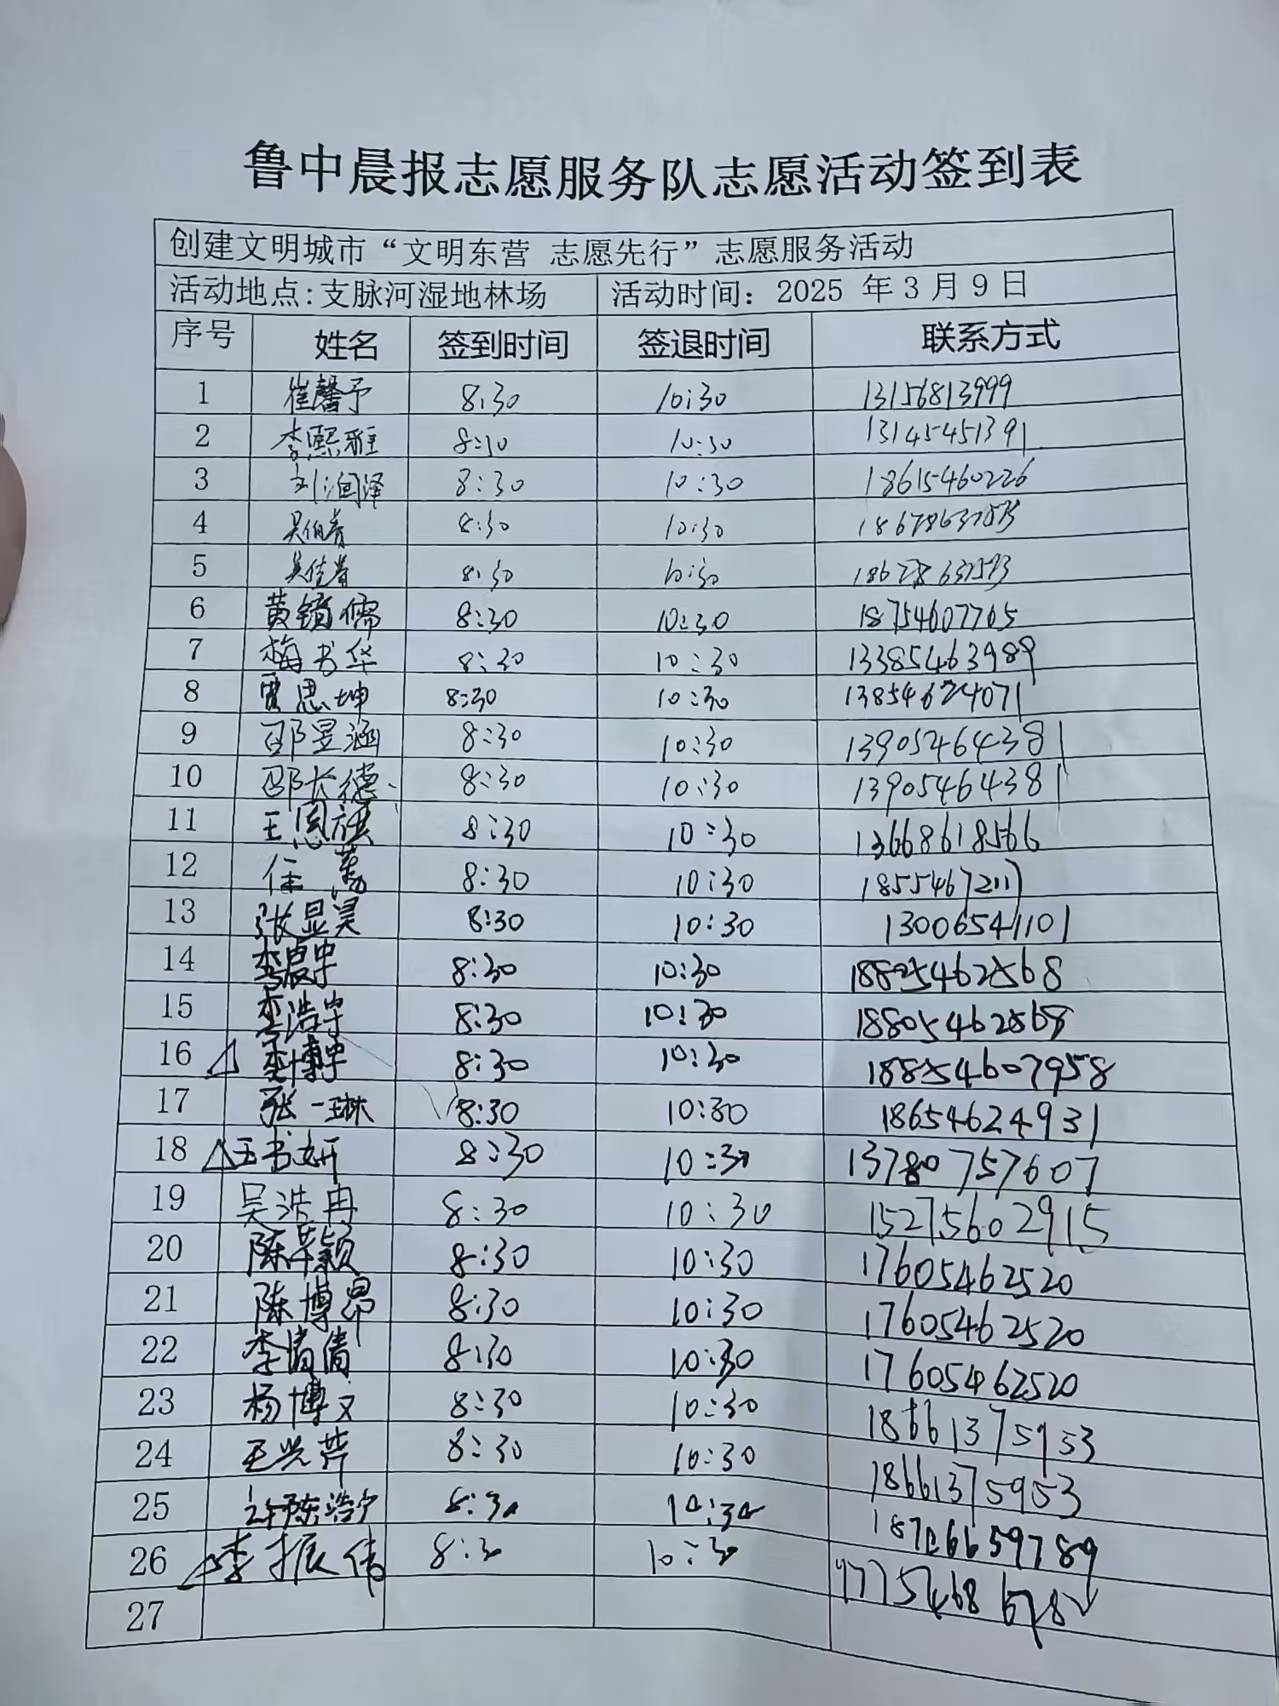 鲁中晨报志愿服务队志愿活动签到表
创建文明城市“文明东营 志愿先行”志愿服务活动
活动地点:支脉河湿地林场 活动时间: 2025 年 3 月 9 日
序号 姓名 签到时间 签退时间 联系方式
1 崔馨予 8:30 10:30 13156813999
2 李熙雅 8:30 10:30 13145451391
3 刘润泽 8:30 10:30 18615460226
4 8:30 10:30
5 8:30 10:30
6 黄镜儒 8:30 10:30 18754607765
7 梅书华 8:30 10:30 13385463989
8 思坤 8:30 10:30 13854624071
9 邵昱涵 8:30 10:30 13905464381
10 邵长德 8:30 10:30 13905464381
11 王恩祺 8:30 10:30 13668618566
12 任 8:30 10:30 18554672117
13 张显昊 8:30 10:30 13006541101
14 李宇 8:30 10:30
15 李浩宇 8:30 10:30 18805462568
16 李博宇 8:30 10:30 18854607958
17 张一琳 8:30 10:30 18654624931
18 王书妍 8:30 10:30 13780757607
19 吴浩冉 8:30 10:30 15275602915
20 陈卓颖 8:30 10:30 17605462520
21 陈博昂 8:30 10:30 17605462520
22 李倩倩 8:30 10:30 17605462520
23 杨博文 8:30 10:30 18661375953
24 王兴芹 8:30 10:30 18661375953
25 许陈浩宁 8:30 10:30 18766659789
26 李振伟 8:30 10:30
27